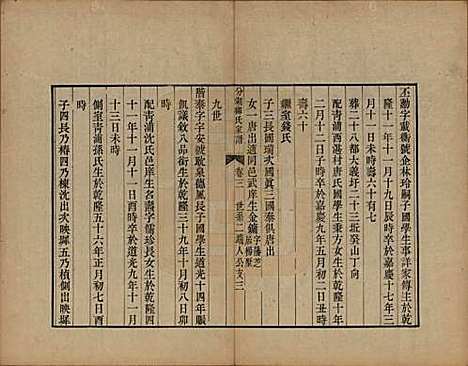 丕勳字載衡號企林玲嗣子國學生事詳家傳生於乾
隆十一年十一月十九日辰時卒於嘉慶十七年三
月十一日未時壽六十有七
葬二十八都大義圩二十三坵癸山丁向
配青浦西湛村唐氏國學生秉方女生於乾隆十年
二月十二日時卒於嘉慶九年五月初二日丑時
壽六十
繼室錢氏
子三長國瑞次國眞三國泰俱唐出
女一唐出適同邑武庠生金鏞
分湖柳氏家譜 卷三 世系二
九世
階泰字字安號耿泉德鳳長子國學生道光十四年賑
饑議敘八品銜生於乾隆三十九年十月初八日卯
時
配青浦沈氏邑庠生名壽字儒珍長女生於乾隆四
十一年十一月十一日酉時卒於道光九年十一月
十三日未時
側室青浦孫氏生於乾隆五十六年正月初七日酉
時
子四長乃椿四乃棟沈出次映墀五乃楨側出映墀